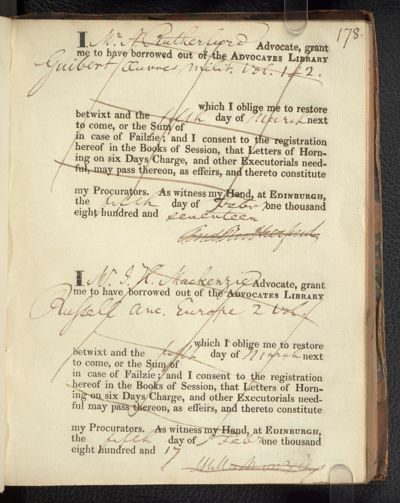 178.
I Mr A Rutherfurd Advocate, grant
me to have borrowed out of the ADVOCATES LIBRARY
Guibert Œuvres milit. Vol. 1 & 2.
which I oblige me to restore
betwixt and the fifth day of March next
to come, or the Sum of
in case of Failzie; and I consent to the registration
hereof in the Books of Session, that Letters of Horn-
ing on six Days Charge, and other Executorials need-
ful, may pass thereon, as effeirs, and thereto constitute
my Procurators. As witness my Hand, at EDINBURGH,
the fifth day of Feb. one thousand
eight hundred and seventeen
I Mr. J. H. Mackenzie Advocate, grant
me to have borrowed out of the ADVOCATES LIBRARY
Russell Anc. Europe 2 Vol.
which I oblige me to restore
betwixt and the fifth day of March next
to come, or the Sum of
in case of Failzie; and I consent to the registration
hereof in the Books of Session, that Letters of Horn-
ing on six Days Charge, and other Executorials need-
ful may pass thereon, as effeirs, and thereto constitute
my Procurators. As witness my Hand, at EDINBURGH,
the fifth day of Feb. one thousand
eight hundred and 17